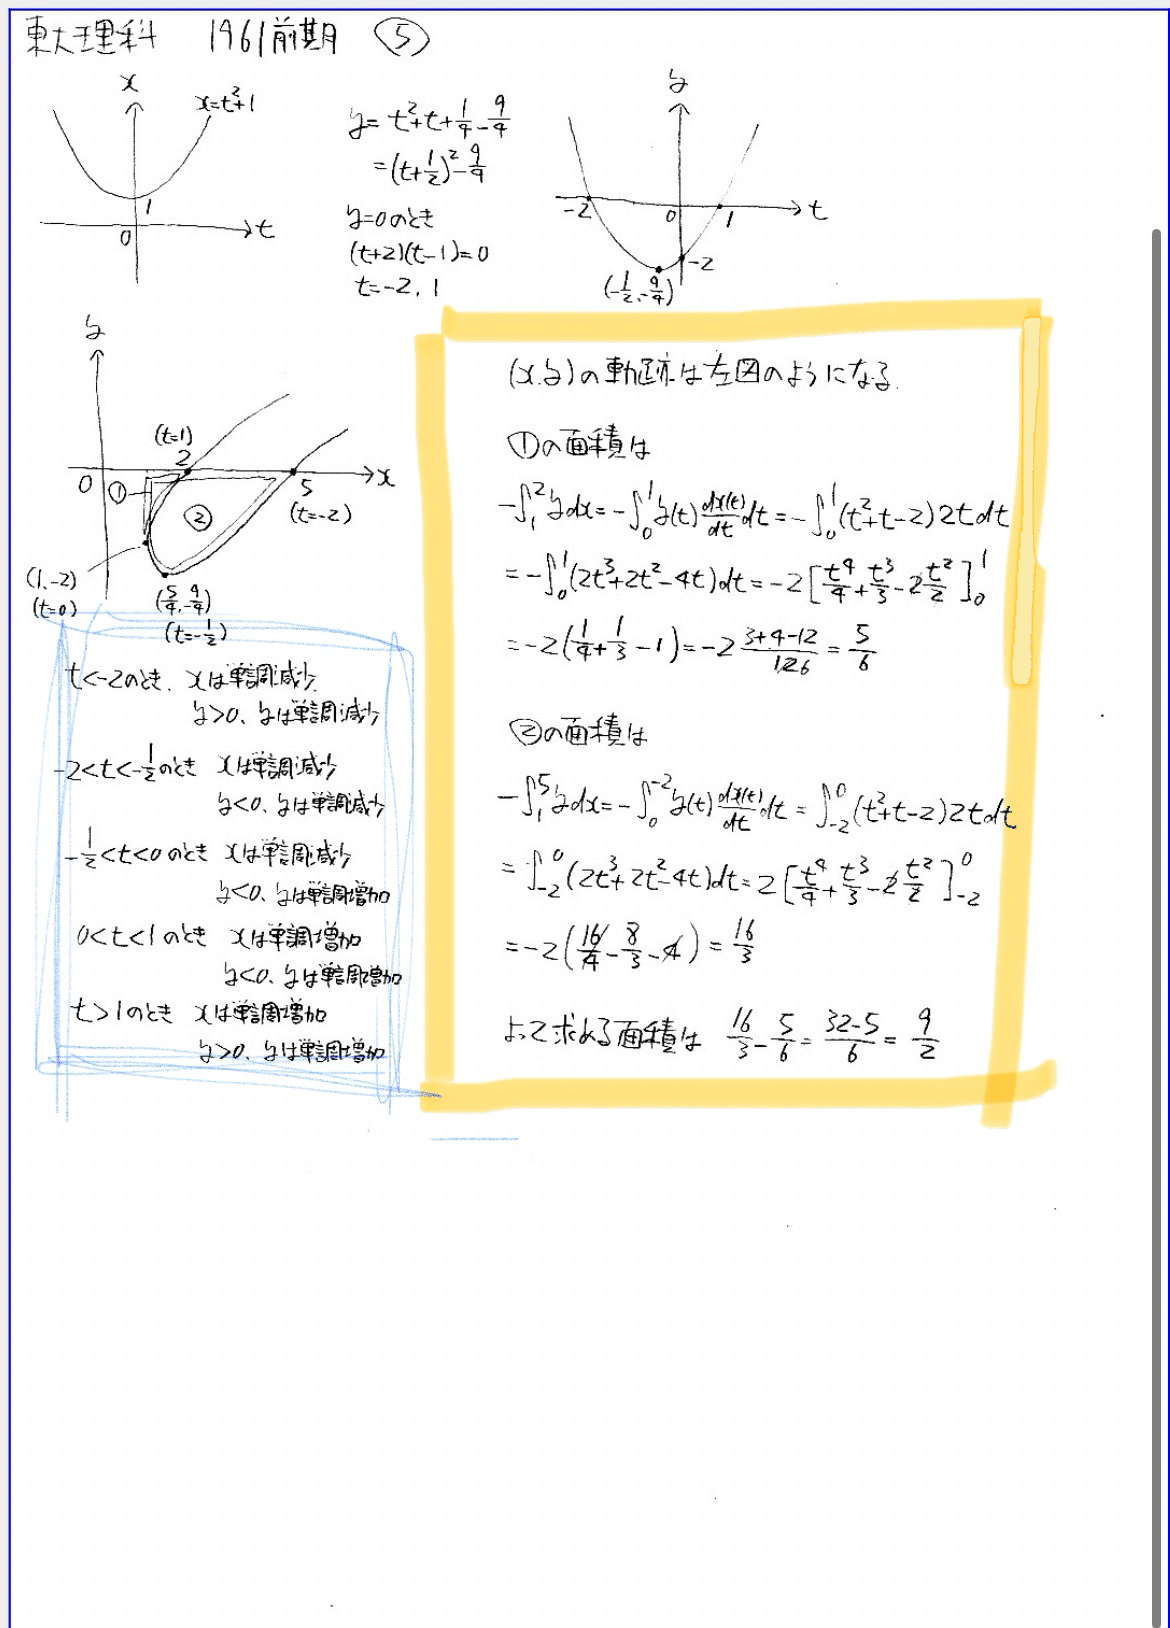 東大理科 1961前期 ⑤
x
x=t²+1
1
0
t
y=t²+t+1/4-9/4
=(t+1/2)²-9/4
y=0のとき
(t+2)(t-1)=0
t=-2, 1
y
-2
0
1
t
-2
(-1/2,-9/4)
y
(t=1)
2
0
①
②
5
x
(t=-2)
(1,-2)
(t=0)
(5/4,-9/4)
(t=-1/2)
t<-2のとき、xは単調減少
y>0、yは単調減少
-2<t<-1/2のとき xは単調減少
y<0、yは単調減少
-1/2<t<0のとき xは単調減少
y<0、yは単調増加
0<t<1のとき xは単調増加
y<0、yは単調増加
t>1のとき xは単調増加
y>0、yは単調増加
(x,y)の軌跡は左図のようになる.
①の面積は
-∫₁²ydx=-∫₀¹y(t)dx(t)/dt dt=-∫₀¹(t²+t-2)2tdt
=-∫₀¹(2t³+2t²-4t)dt=-2[t⁴/4+t³/3-2t²/2]₀¹
=-2(1/4+1/3-1)=-2 (3+4-12)/126=5/6
②の面積は
-∫₁⁵ydx=-∫₀⁻²y(t)dx(t)/dt dt=∫₋₂⁰(t²+t-2)2tdt
=∫₋₂⁰(2t³+2t²-4t)dt=2[t⁴/4+t³/3-2t²/2]₋₂⁰
=-2(16/4-8/3-4)=16/3
よって求める面積は 16/3-5/6=(32-5)/6=9/2